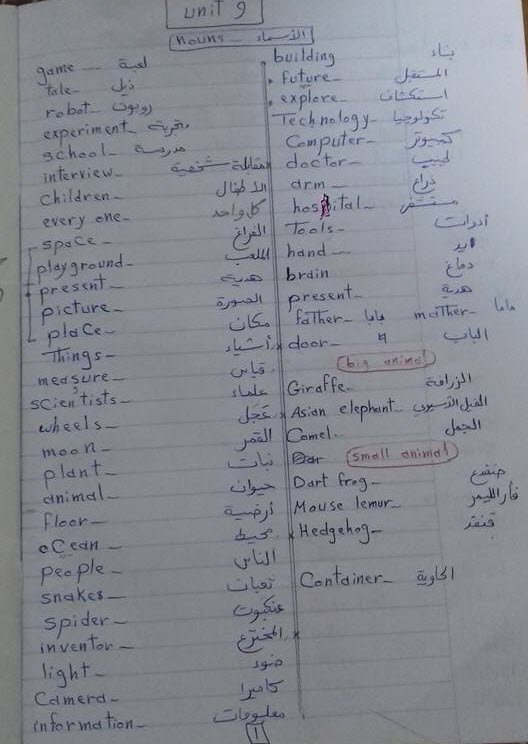 unit 9
nouns - الأسماء
game - لعبة
tale - ذيل
robot - روبوت
experiment - تجربة
school - مدرسة
interview - مقابلة شخصية
children - الأطفال
every one - كل واحد
space - الفراغ
playground - الملعب
present - هدية
picture - الصورة
place - مكان
Things - أشياء
measure - قياس
scientists - علماء
wheels - عجل
moon - القمر
plant - نبات
animal - حيوان
floor - أرضية
ocean - محيط
people - الناس
snakes - تعبات
spider - عنكبوت
inventor - المخترع
light - ضوء
Camera - كاميرا
information - معلومات
1
building بناء
Future - المستقبل
explore - استكشاف
Technology - تكولوجيا
Computer - كمبيوتر
doctor - طبيب
arm - ذراع
hospital - مستشفى
Tools - أدوات
hand - ايد
brain دماغ
present - هدية
father - بابا mother - ماما
door - الباب
big animal
Giraffe - الزرافة
Asian elephant - الفيل الآسيوي
Camel - الجمل
small animal
Dart frog - ضفدع
Mouse lemur - فأر الليمر
Hedgehog - قنفذ
Container - الحاوية